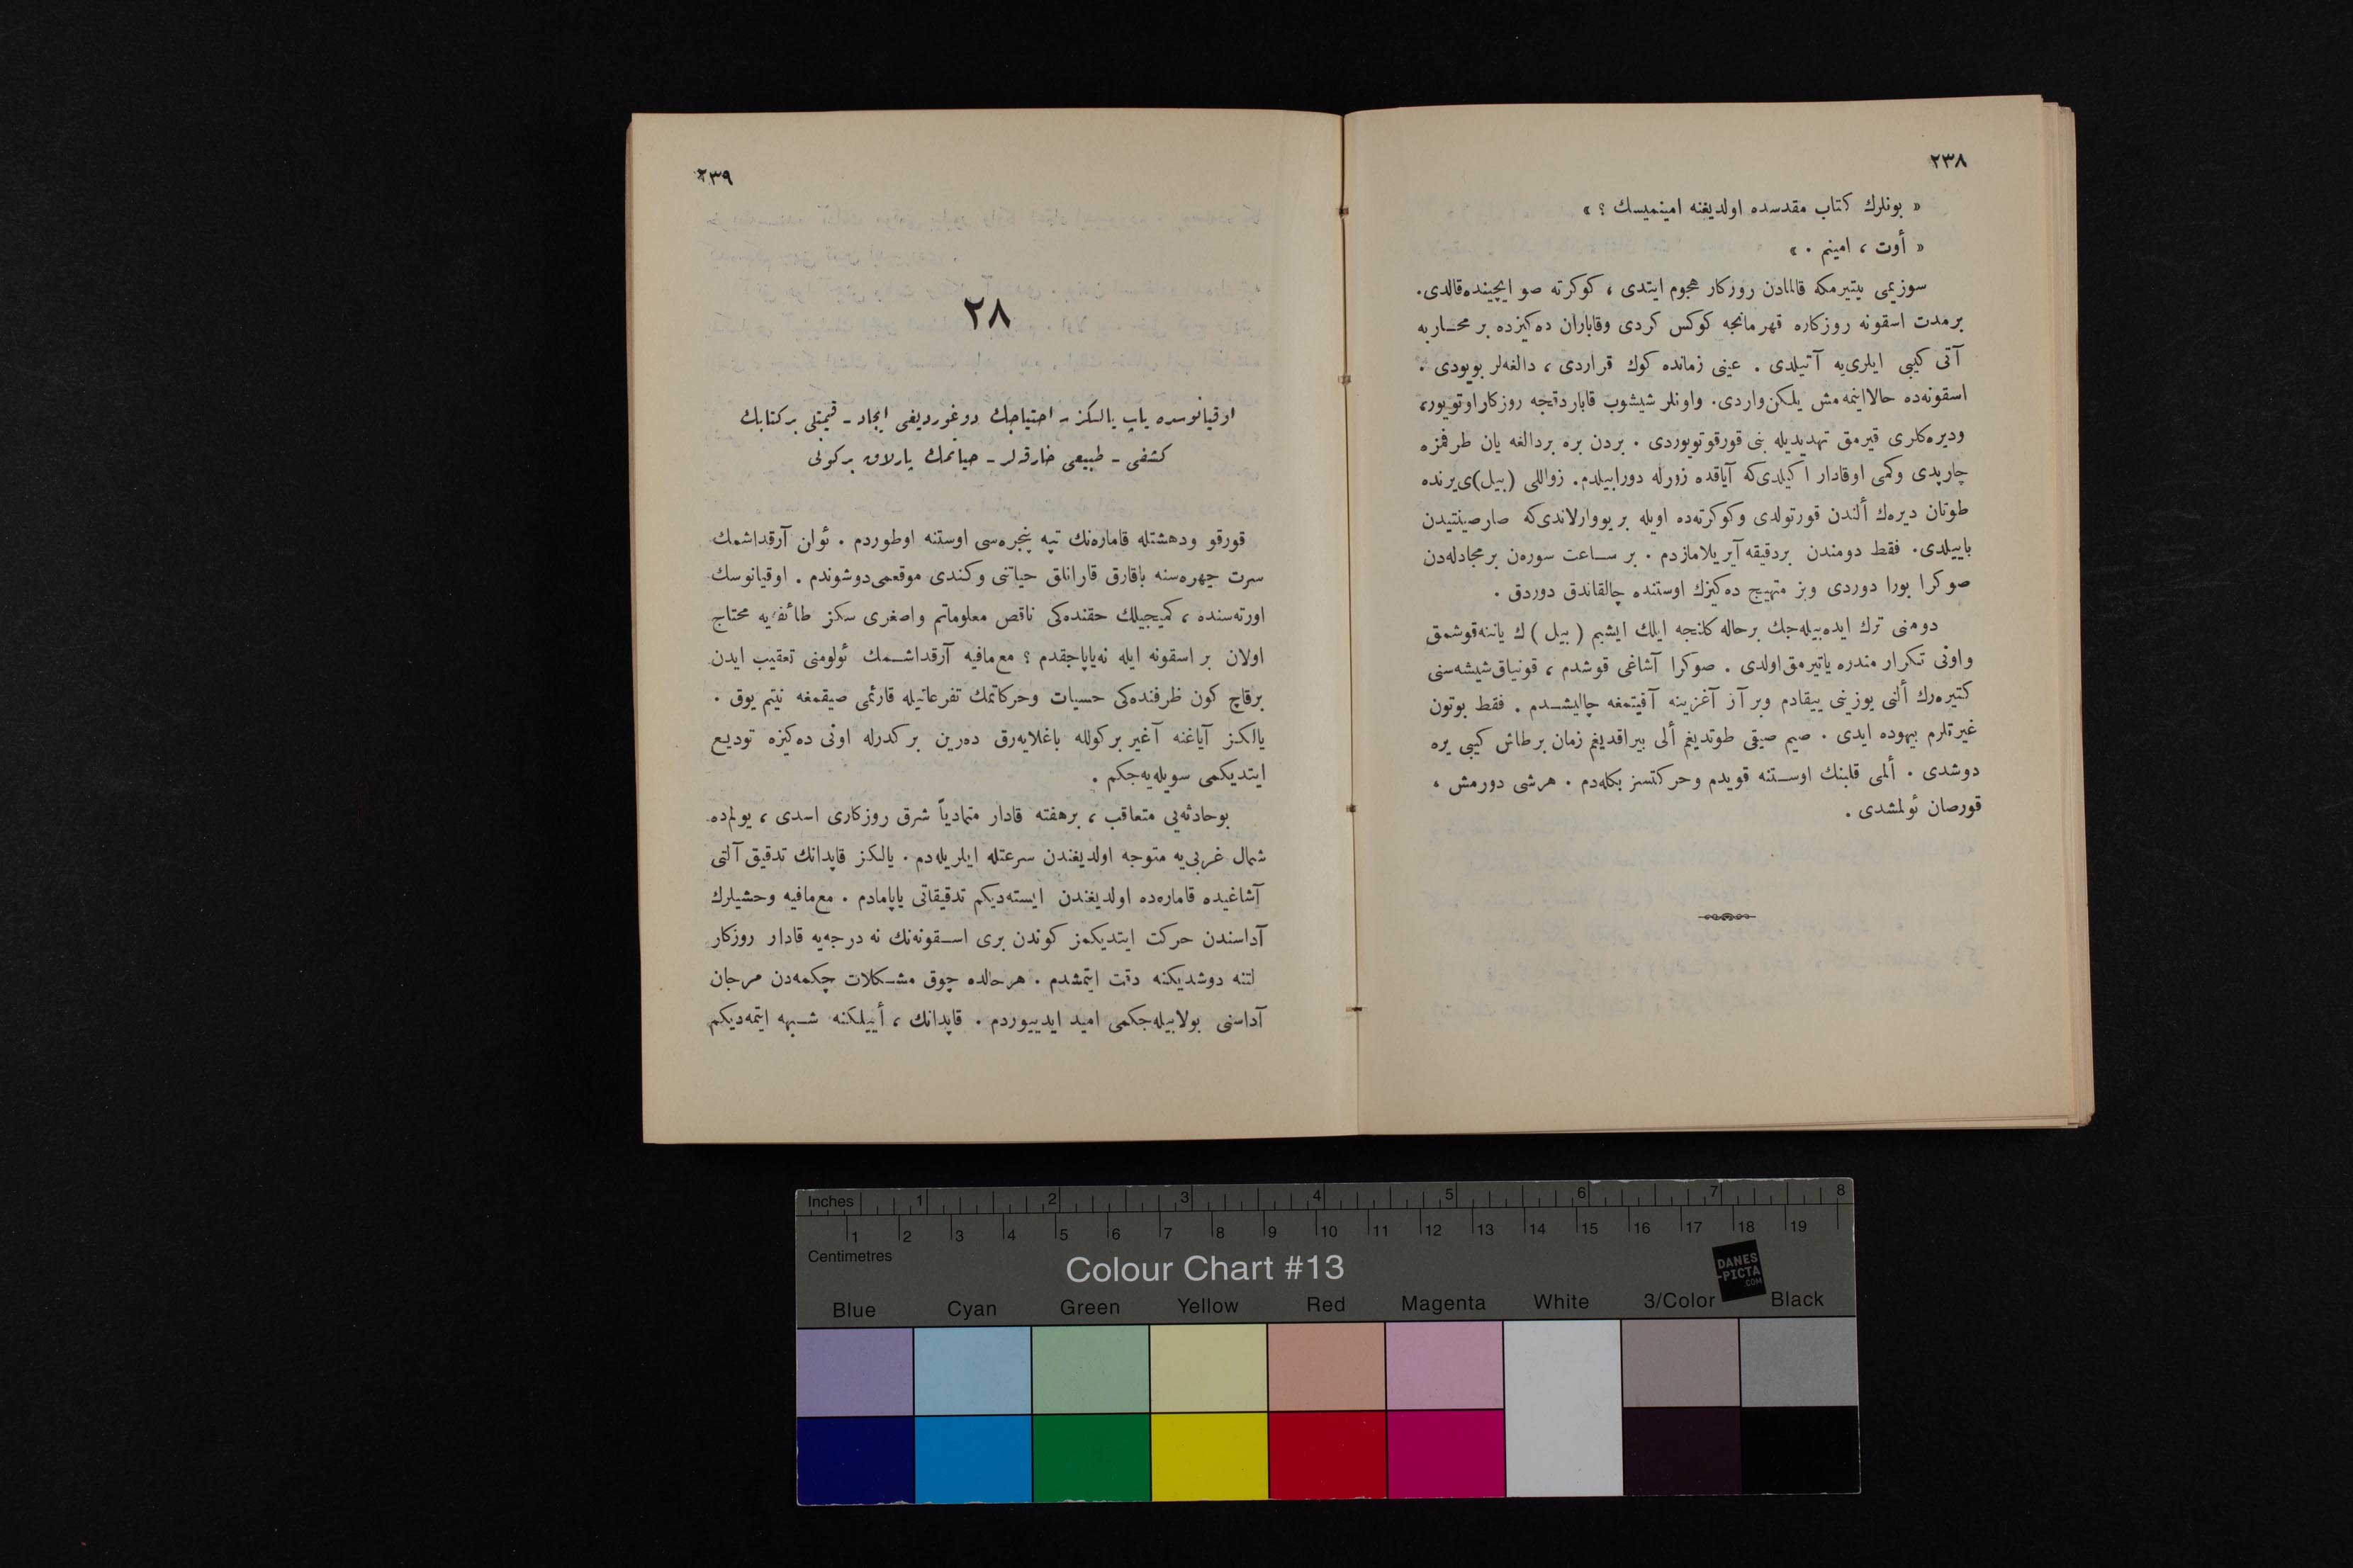 ٢٣٨
« بونلرك كتاب مقدسده اولديغنه امينميسك ؟ »
« أوت ، امينم . »
سوزيمى بيتيرمكه قالمادن روزكار هجوم ايتدى ، كوكرته صو ايچينده قالدى.
برمدت اسقونه روزكاره قهرمانجه كوكس كردى وقاباران ده‌كيزده بر محاربه
آتى كيبى ايلرى‌يه آتيلدى . عينى زمانده كوك قراردى ، دالغه‌لر بويودى .
اسقونه‌ده حالا اينمه‌مش يلكن واردى. واونلر شيشوب قاباردقجه روزكار اوتويور،
وديره‌كلرى قيرمق تهديديله بنى قورقوتويوردى . بردن بره بردالغه يان طرفمزه
چارپدى وكمى اوقادار اكيلدى‌كه آياقده زورله دورابيلدم. زواللى (بيل)ى يرنده
طوتان ديره‌ك ألندن قورتولدى وكوكرته‌ده اويله بر يووارلاندى‌كه صارصينتيدن
باييلدى. فقط دومندن بردقيقه آيريلامازدم . بر ساعت سوره‌ن برمجادله‌دن
صوكرا بورا دوردى وبز متهيج ده‌كيزك اوستنده چالقاندق دوردق .
دومنى ترك ايده‌بيله‌جك برحاله كلنجه ايلك ايشيم ( بيل ) ك ياننه قوشمق
واونى تكرار مندره ياتيرمق اولدى . صوكرا آشاغى قوشدم ، قونياق شيشه‌سنى
كتيره‌رك ألنى يوزينى ييقادم وبر آز آغزينه آقيتمغه چاليشدم . فقط بوتون
غيرتلرم بيهوده ايدى . صيم صيقى طوتديغم ألى بيراقديغم زمان برطاش كيبى يره
دوشدى . ألمى قلبنك اوستنه قويدم وحركتسز بكله‌دم . هرشى دورمش ،
قورصان ئولمشدى .
٢٣٩
٢٨
اوقيانوسده ياپ يالكز ـ احتياجك دوغورديغى ايجاد ـ قيمتلى بركتابك
كشفى ـ طبيعى خارقه‌لر ـ حياتمك پارلاق بركونى
قورقو ودهشتله قاماره‌نك تپه پنجره‌سى اوستنه اوطوردم . ئولن آرقداشمك
سرت چهره‌سنه باقارق قارانلق حياتنى وكندى موقعمى دوشوندم . اوقيانوسك
اورته‌سنده ، كميجيلك حقنده‌كى ناقص معلوماتم واصغرى سكز طائفه‌يه محتاج
اولان بر اسقونه ايله نه‌ياپاجقدم ؟ مع‌مافيه آرقداشمك ئولومنى تعقيب ايدن
برقاچ كون ظرفنده‌كى حسيات وحركاتمك تفرعاتيله قارئمى صيقمغه نيتم يوق .
يالكز آياغنه آغير بركولله باغلايه‌رق ده‌رين بركدرله اونى ده‌كيزه توديع
ايتديكمى سويله‌يه‌جكم .
بوحادثه‌يى متعاقب ، برهفته قادار متمادياً شرق روزكارى اسدى ، يولم‌ده
شمال غربى‌يه متوجه اولديغندن سرعتله ايلريله‌دم . يالكز قاپدانك تدقيق آلتى
آشاغيده قاماره‌ده اولديغندن ايسته‌ديكم تدقيقاتى ياپامادم . مع‌مافيه وحشيلرك
آداسندن حركت ايتديكمز كوندن برى اسقونه‌نك نه درجه‌يه قادار روزكار
لتنه دوشديكنه دقت ايتمشدم . هرحالده چوق مشكلات چكمه‌دن مرجان
آداسنى بولابيله‌جكمى اميد ايدييوردم . قاپدانك ، أييلكنه شبهه ايتمه‌ديكم
Inches 1 2 3 4 5 6 7 8
1 2 3 4 5 6 7 8 9 10 11 12 13 14 15 16 17 18 19
Centimetres
Colour Chart #13
DANES
-PICTA
.COM
Blue Cyan Green Yellow Red Magenta White 3/Color Black